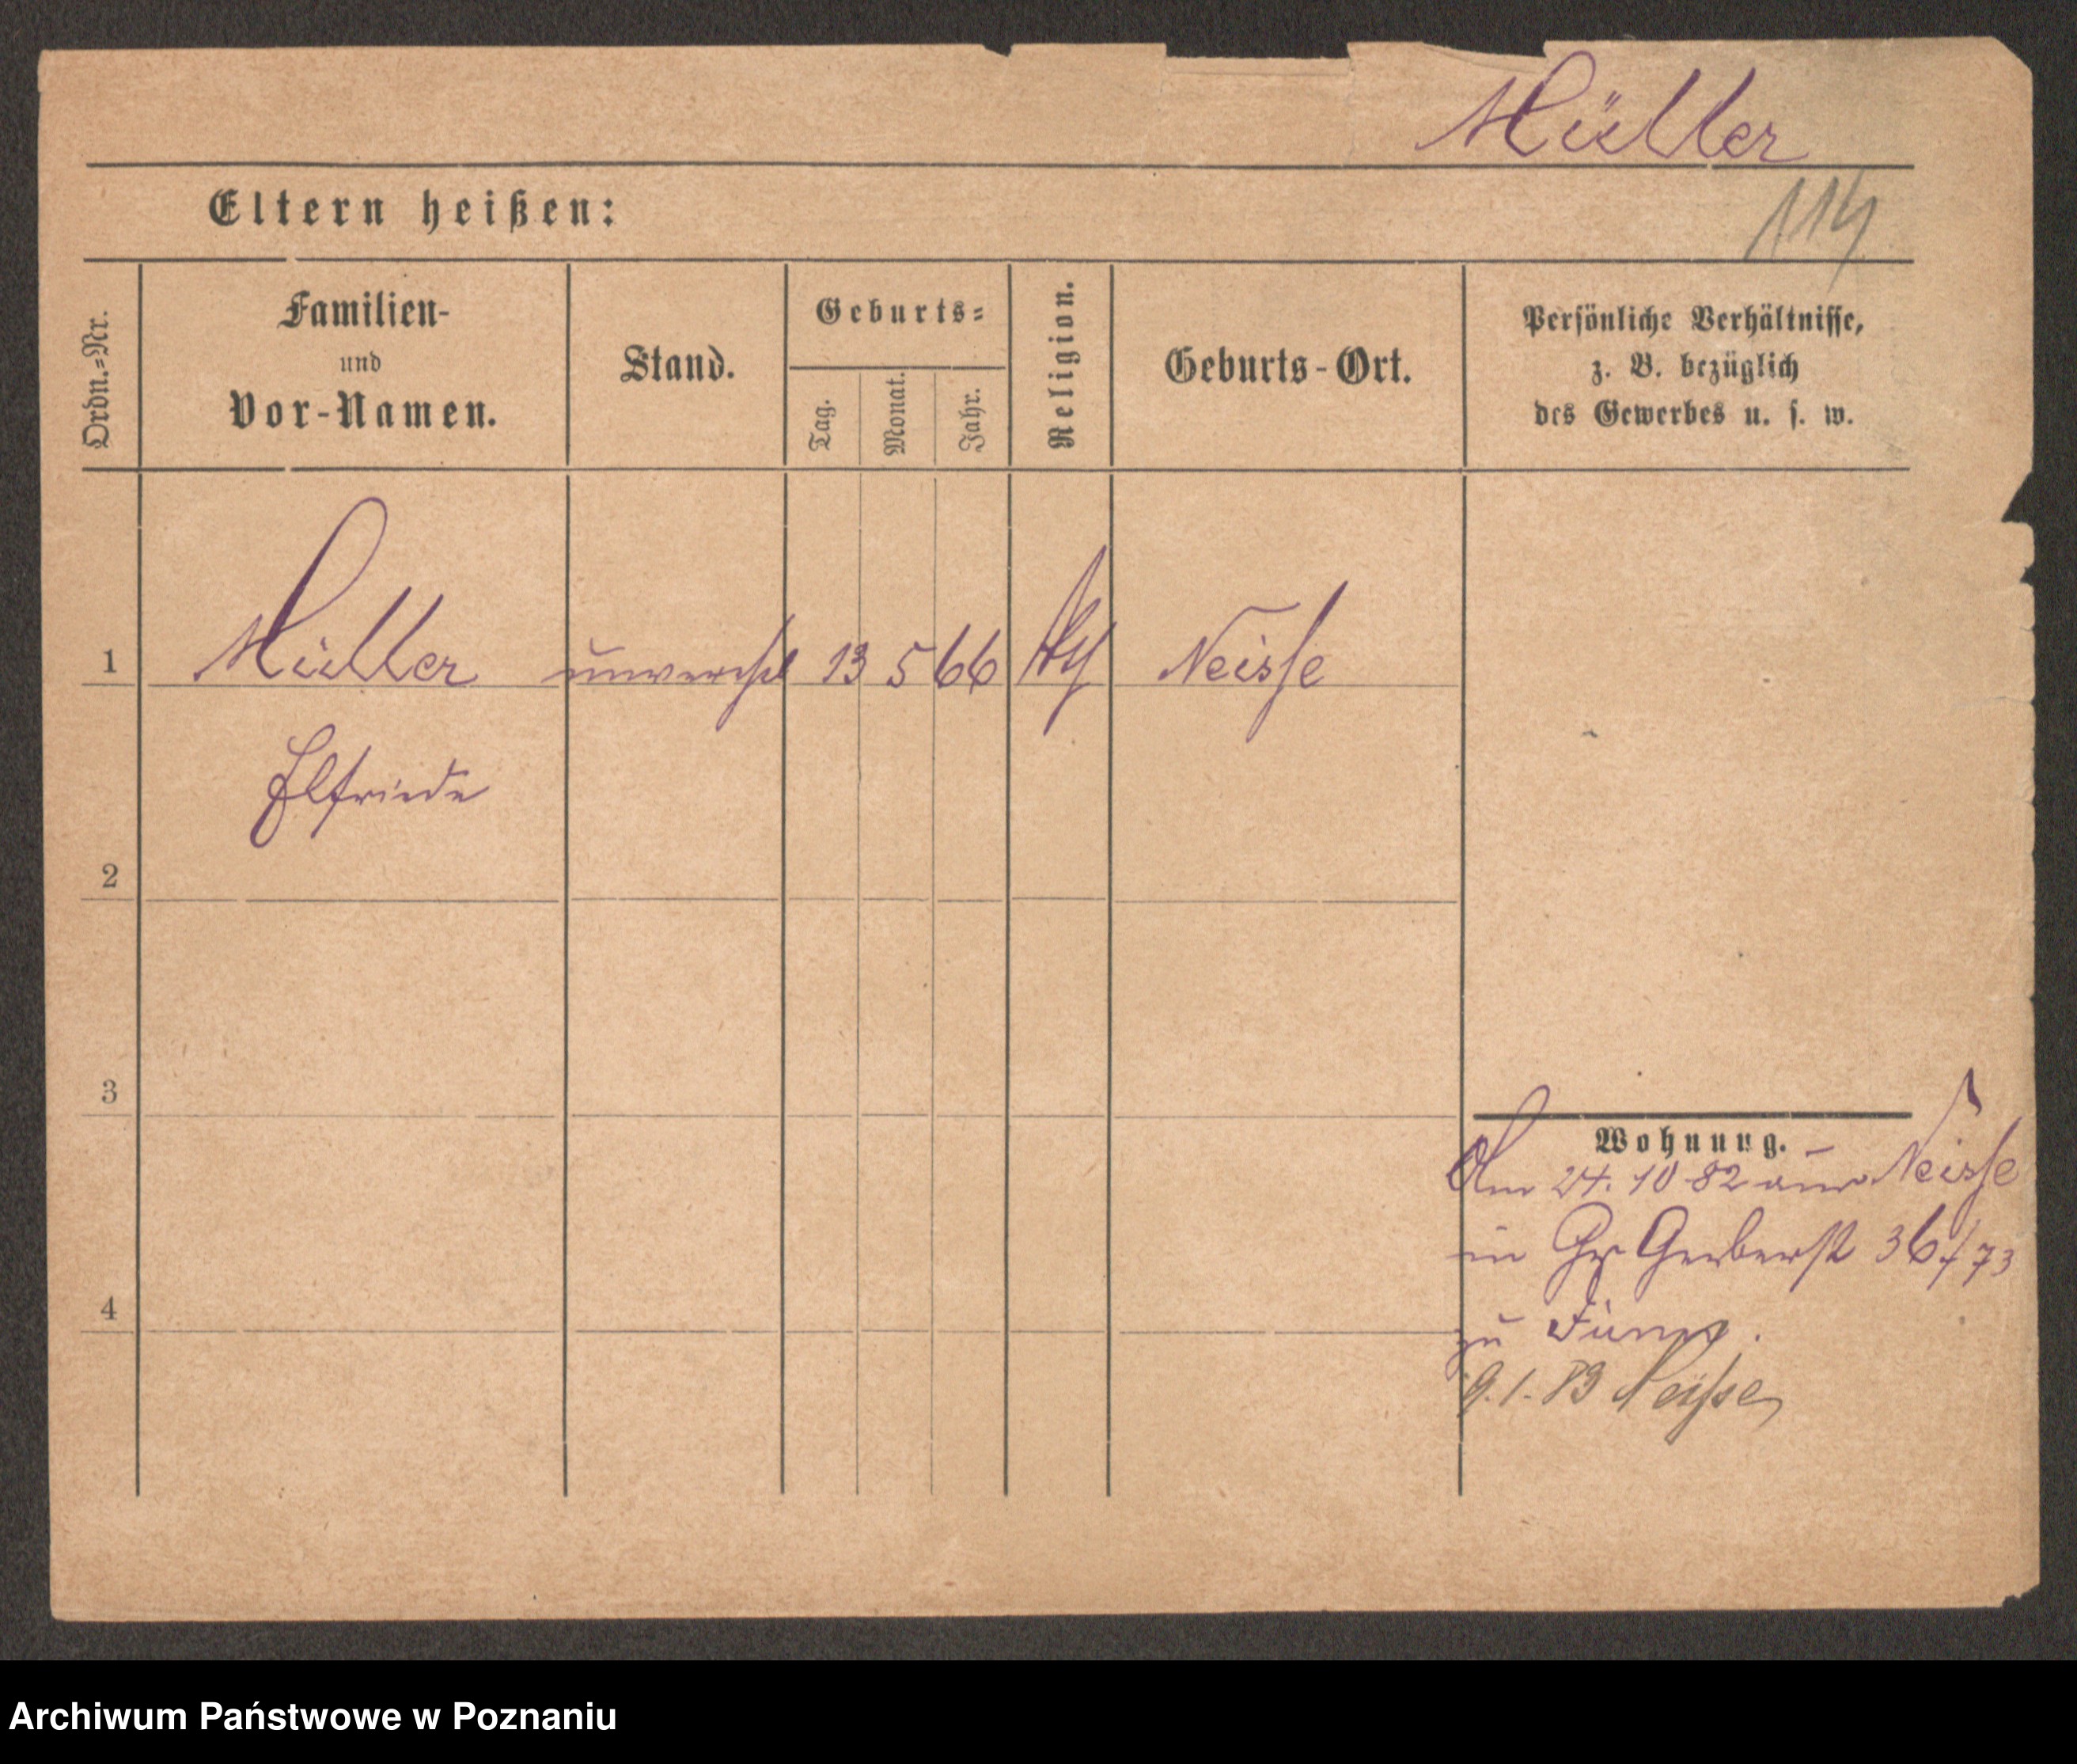 Müller
Eltern heißen:
114
Ordn.=Nr.
Familien-
und
Vor-Namen.
Stand.
Geburts=
Tag.
Monat.
Jahr.
Religion.
Geburts-Ort.
Persönliche Verhältnisse,
z. B. bezüglich
des Gewerbes u. s. w.
1 Müller unverehel 13 5 66 Neisse
Elfriede
2
3
4
Wohnung.
Am 24. 10 82 aus Neisse
in Gr Gerberst 36/73
zu
9.1.83 Neisse
Archiwum Państwowe w Poznaniu